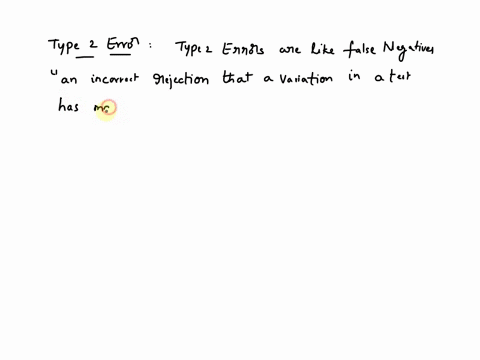 Type 2 Error : Type 2 Errors are like false Negatives
" an incorrect rejection that a variation in a test
has ma